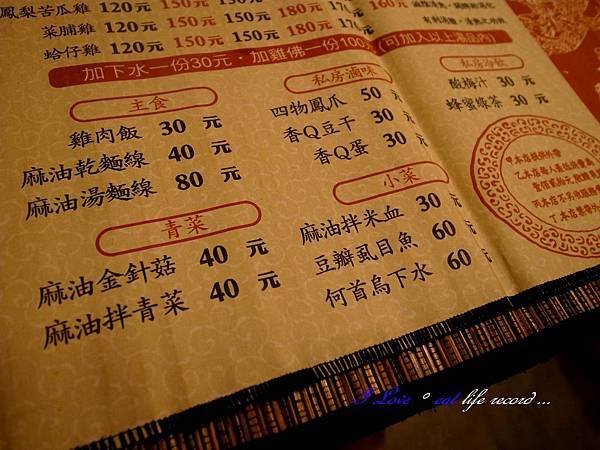 鳳梨苦瓜雞 120元 150元 150元 180元 170元 160元
菜脯雞 120元 150元 150元 180元 170元
蛤仔雞 120元 150元 150元
加下水一份30元.加雞佛一份100元(可加入以上湯品內)
主食
雞肉飯 30 元
麻油乾麵線 40 元
麻油湯麵線 80 元
青菜
麻油金針菇 40 元
麻油拌青菜 40 元
私房滷味
四物鳳爪 50 元
香Q豆干 30 元
香Q蛋 30 元
小菜
麻油拌米血 30 元
豆瓣虱目魚 60 元
何首烏下水 60 元
私房冷飲
酸梅汁 30 元
蜂蜜綠茶 30 元
I Love ° eat life record ...